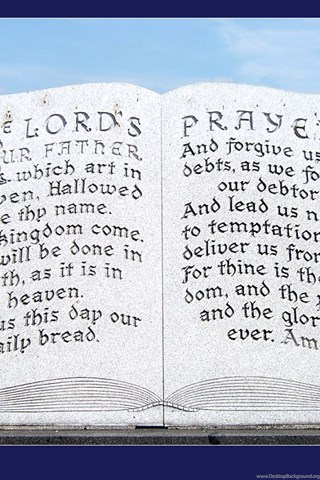 E LORD'S
UR FATHER
s. which art in
ven, Hallowed
e thy name.
kingdom come.
will be done in
th, as it is in
heaven.
us this day our
aily bread.
PRAYE
And forgive us
debts, as we fo
our debtor
And lead us n
to temptation
deliver us fro
For thine is the
dom, and the
and the glor
ever. Am
www.DesktopBackground.org